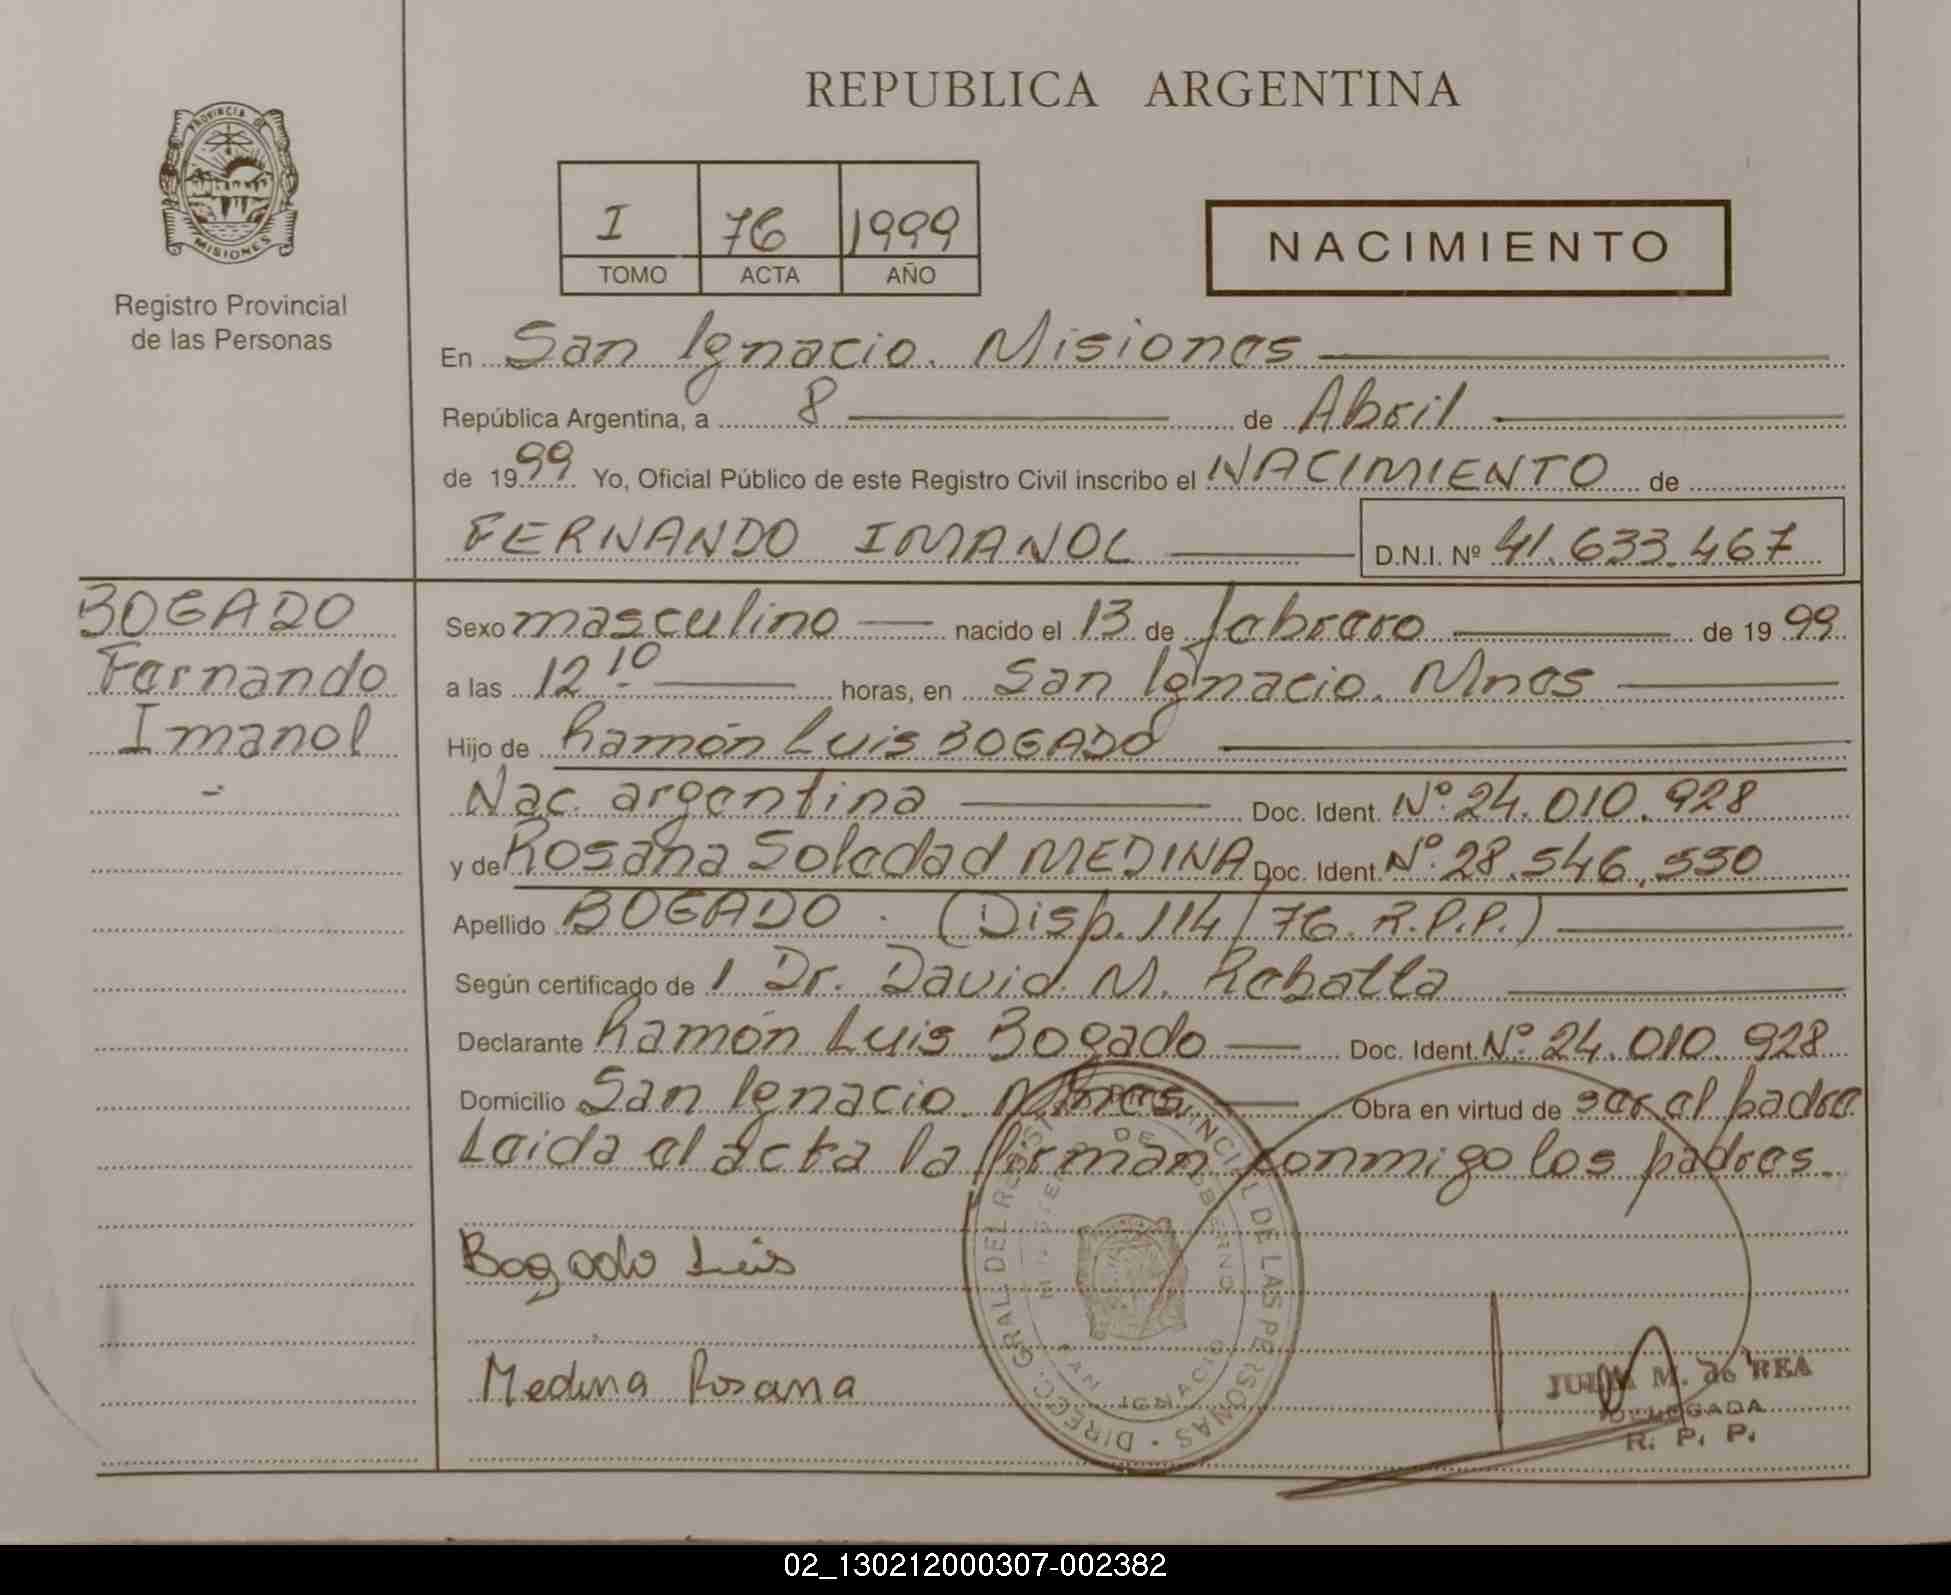 REPUBLICA ARGENTINA
PROVINCIA DE
MISIONES
Registro Provincial
de las Personas
I 76 1999
TOMO ACTA AÑO
NACIMIENTO
En San Ignacio. Misiones
República Argentina, a 8 de Abril
de 1999 Yo, Oficial Público de este Registro Civil inscribo el NACIMIENTO de
FERNANDO IMANOL D.N.I. Nº 41.633.467
BOGADO
Fernando
Imanol
Sexo masculino nacido el 13 de febrero de 1999
a las 12 10 horas, en San Ignacio. Mnes
Hijo de Ramón Luis BOGADO
Nac. argentina Doc. Ident. Nº 24.010.928
y de Rosana Soledad MEDINA Doc. Ident. Nº 28.546.550
Apellido BOGADO. (Disp. 114/76. R.P.P.)
Según certificado de l Dr. David M.
Declarante Ramón Luis Bogado Doc. Ident. Nº 24.010.928
Domicilio San Ignacio. Mnes. Obra en virtud de ser el padre
Leida el acta la firman conmigo los padres.
Bogado Luis
Medina Rosana
DIREC. GRAL. DEL REGISTRO PROVINCIAL DE LAS PERSONAS
MINISTERIO DE GOBIERNO
SAN IGNACIO
M. de REA
DELEGADA
R. P. P.
02_130212000307-002382